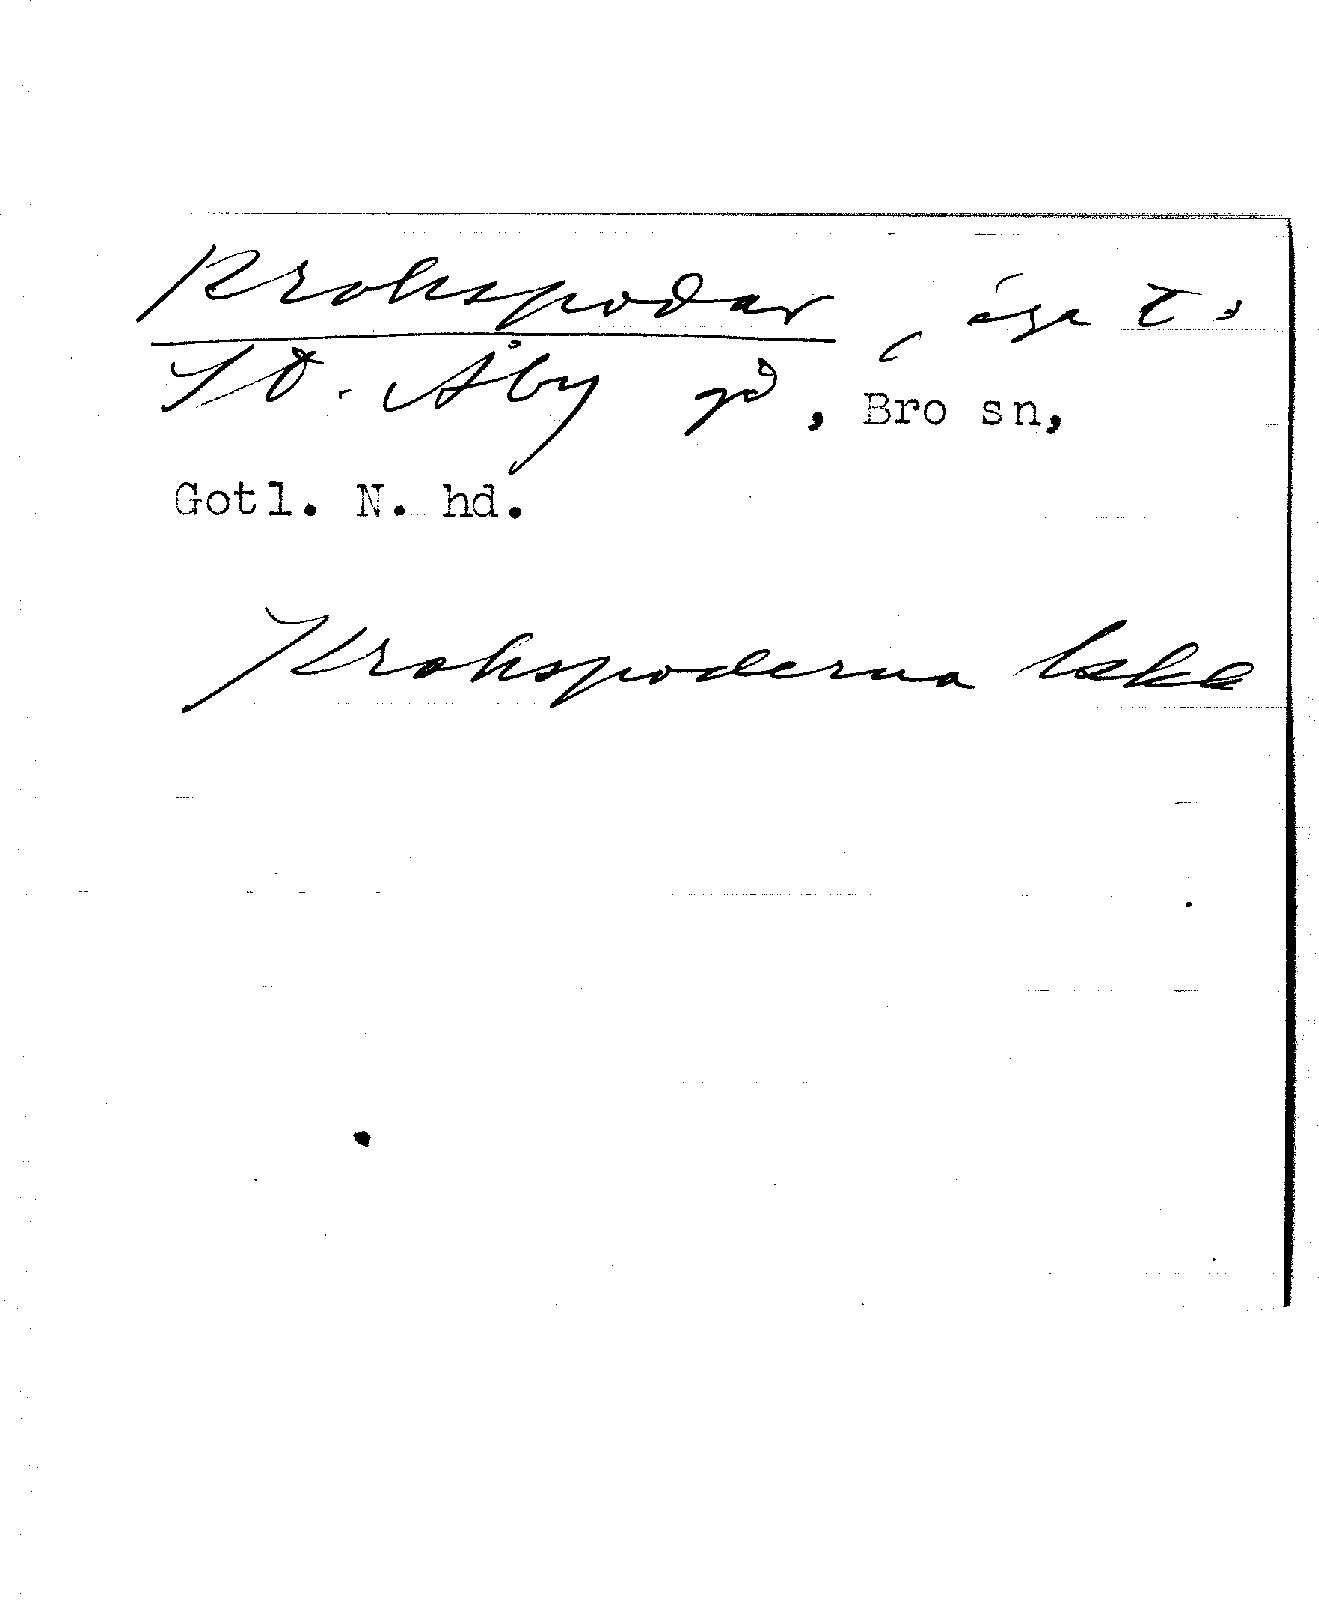 Krokspodar, äga t.
St. Åby gd, Bro sn,
Gotl. N. hd.
Krokspoderna lskk